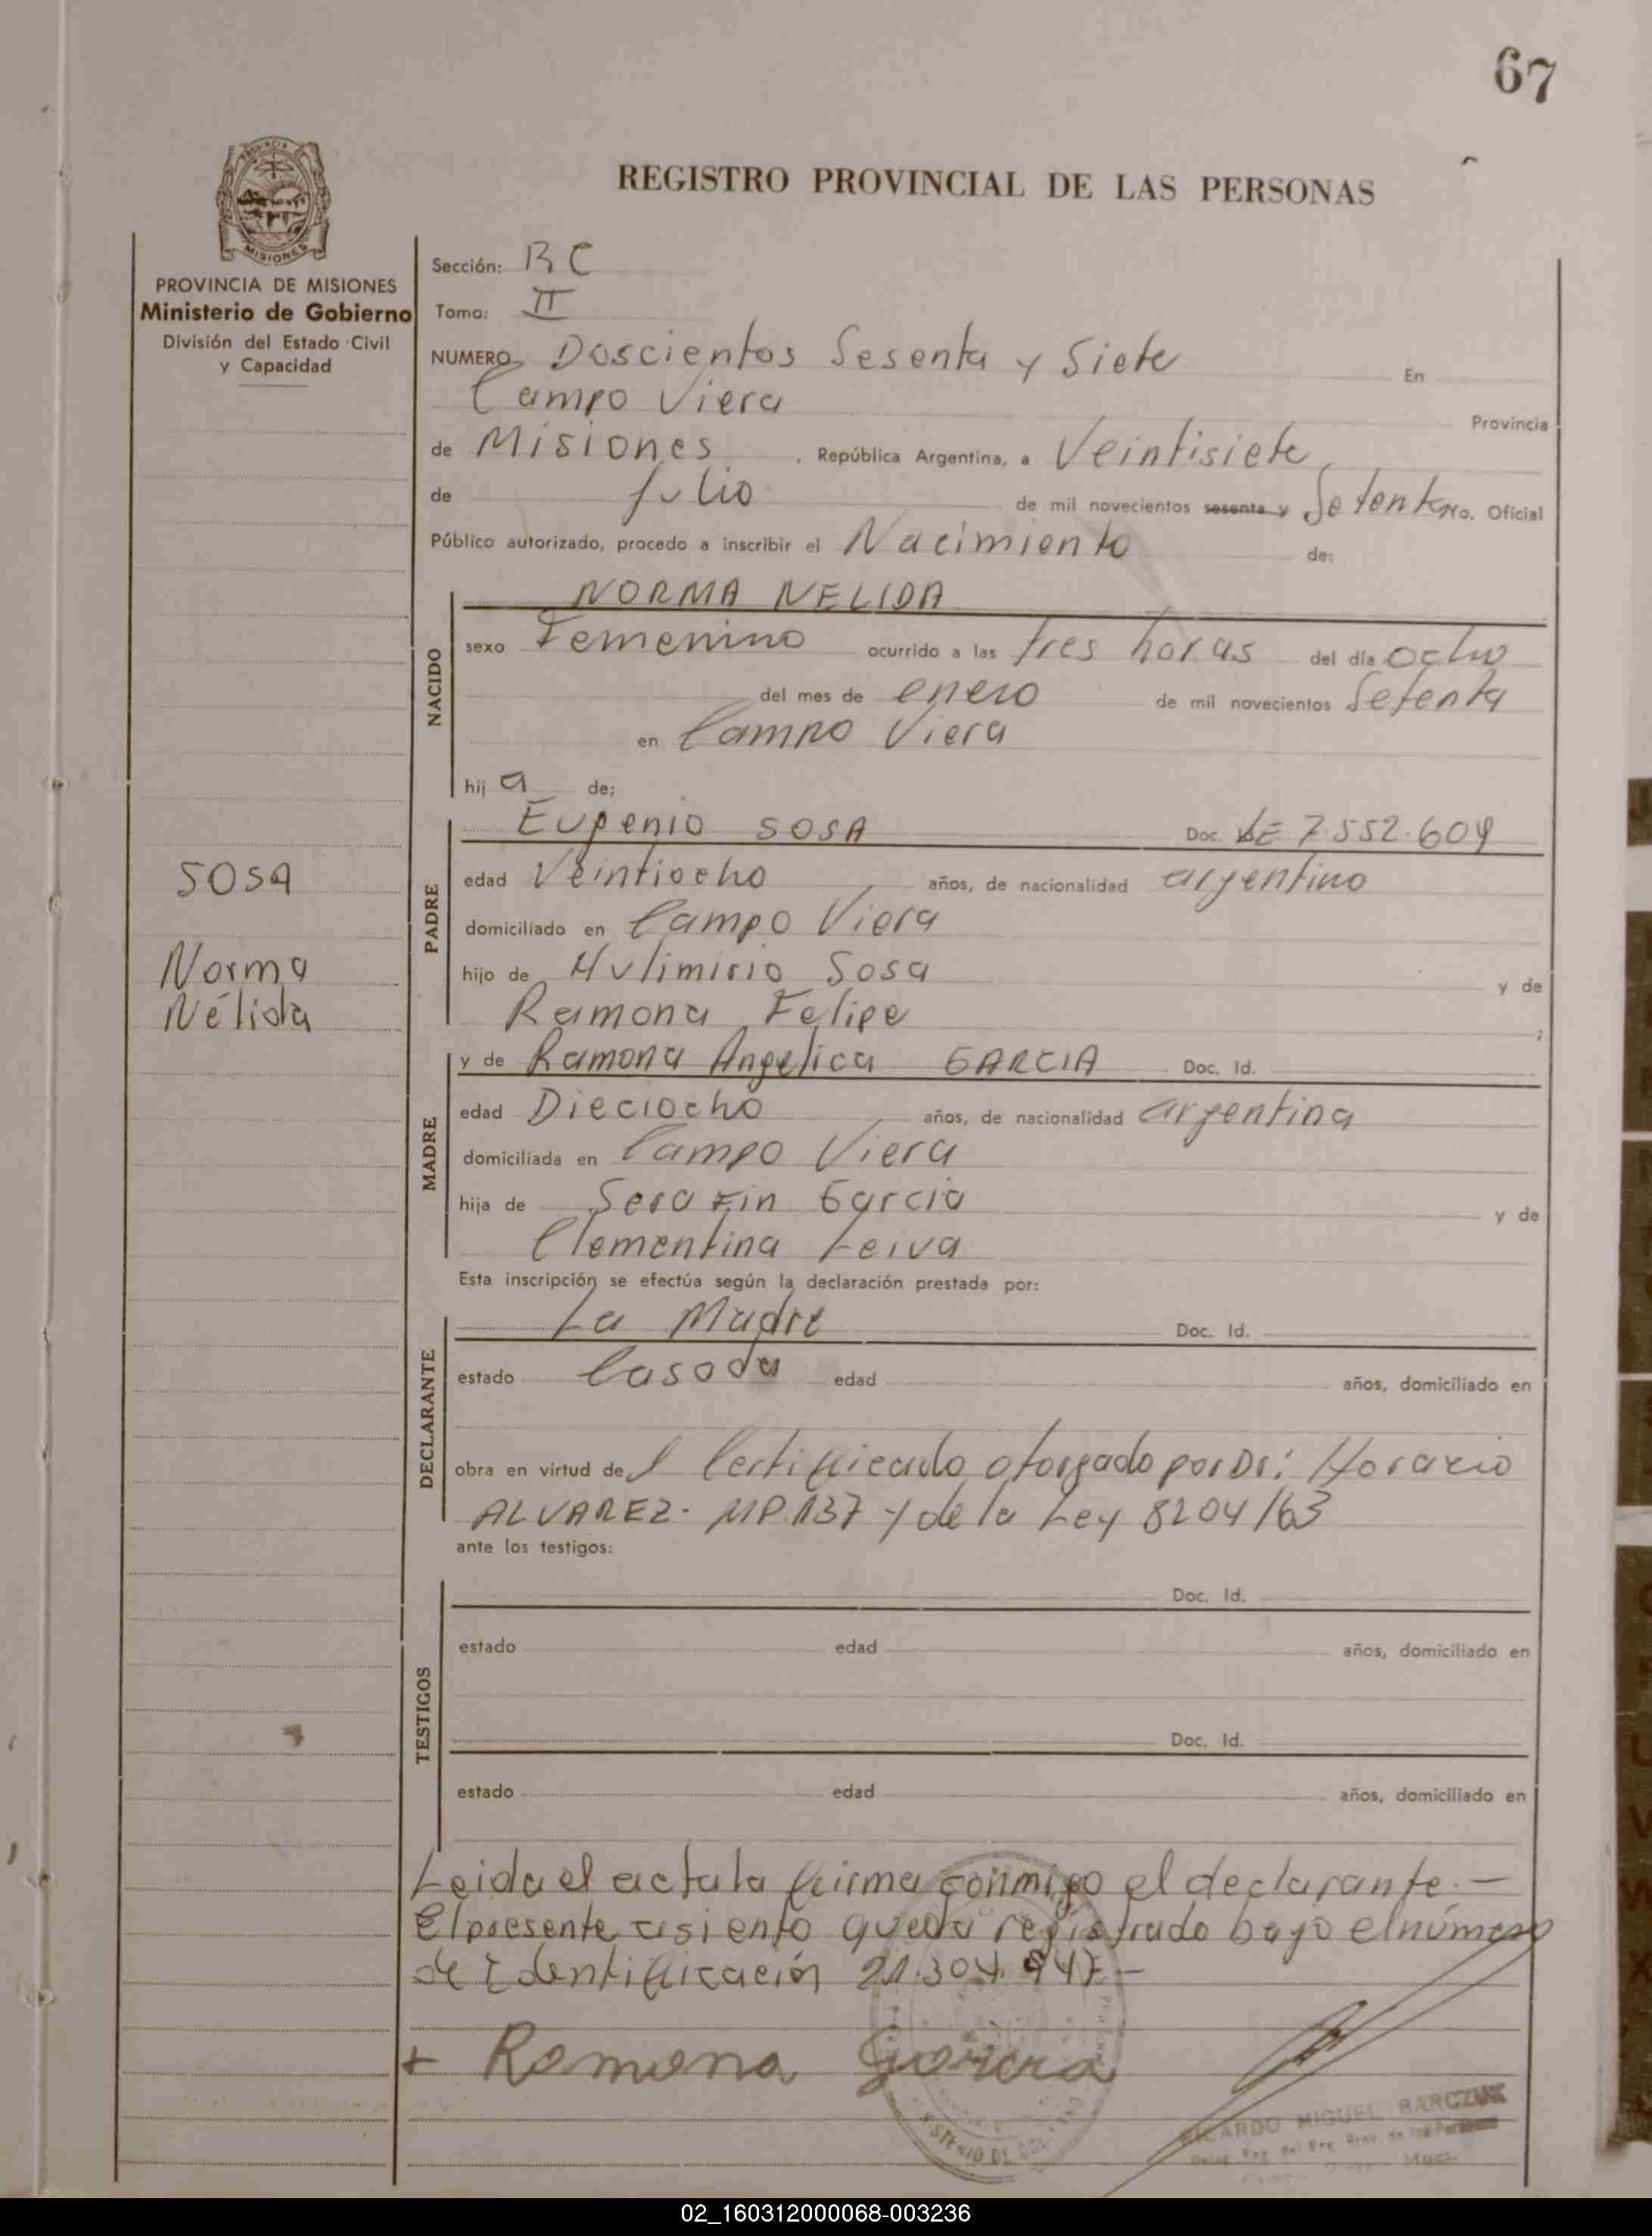 67
MISIONES
REGISTRO PROVINCIAL DE LAS PERSONAS
PROVINCIA DE MISIONES
Ministerio de Gobierno
División del Estado Civil
y Capacidad
Sección: BC
Tomo: II
NUMERO Doscientos Sesenta y Siete En
Campo Viera Provincia
de Misiones, República Argentina, a Veintisiete
de Julio de mil novecientos sesenta y Setenta Yo, Oficial
Público autorizado, procedo a inscribir el Nacimiento de:
NACIDO
NORMA NELIDA
sexo Femenino ocurrido a las tres horas del día ocho
del mes de enero de mil novecientos Setenta
en Campo Viera
hija de;
SOSA
Norma
Nélida
PADRE
Eugenio SOSA Doc. LE 7.552.609
edad Veintiocho años, de nacionalidad argentino
domiciliado en Campo Viera
hijo de Sosa y de
Ramona Felipe ;
MADRE
y de Ramona Angelica GARCIA Doc. Id.
edad Dieciocho años, de nacionalidad argentina
domiciliada en Campo Viera
hija de Serafin Garcia y de
Clementina Leiva
Esta inscripción se efectúa según la declaración prestada por:
DECLARANTE
La Madre Doc. Id.
estado Casada edad años, domiciliado en
obra en virtud del Certificado otorgado por Dr: Horacio
ALVAREZ- MP.137 y de la Ley 8204/63
ante los testigos:
TESTIGOS
Doc. Id.
estado edad años, domiciliado en
Doc. Id.
estado edad años, domiciliado en
Leida el acta la firma conmigo el declarante.-
El presente asiento queda registrado bajo el número
de Identificación 21.304.947-
+ Ramona Garcia
RICARDO MIGUEL BARCZUK
02_160312000068-003236